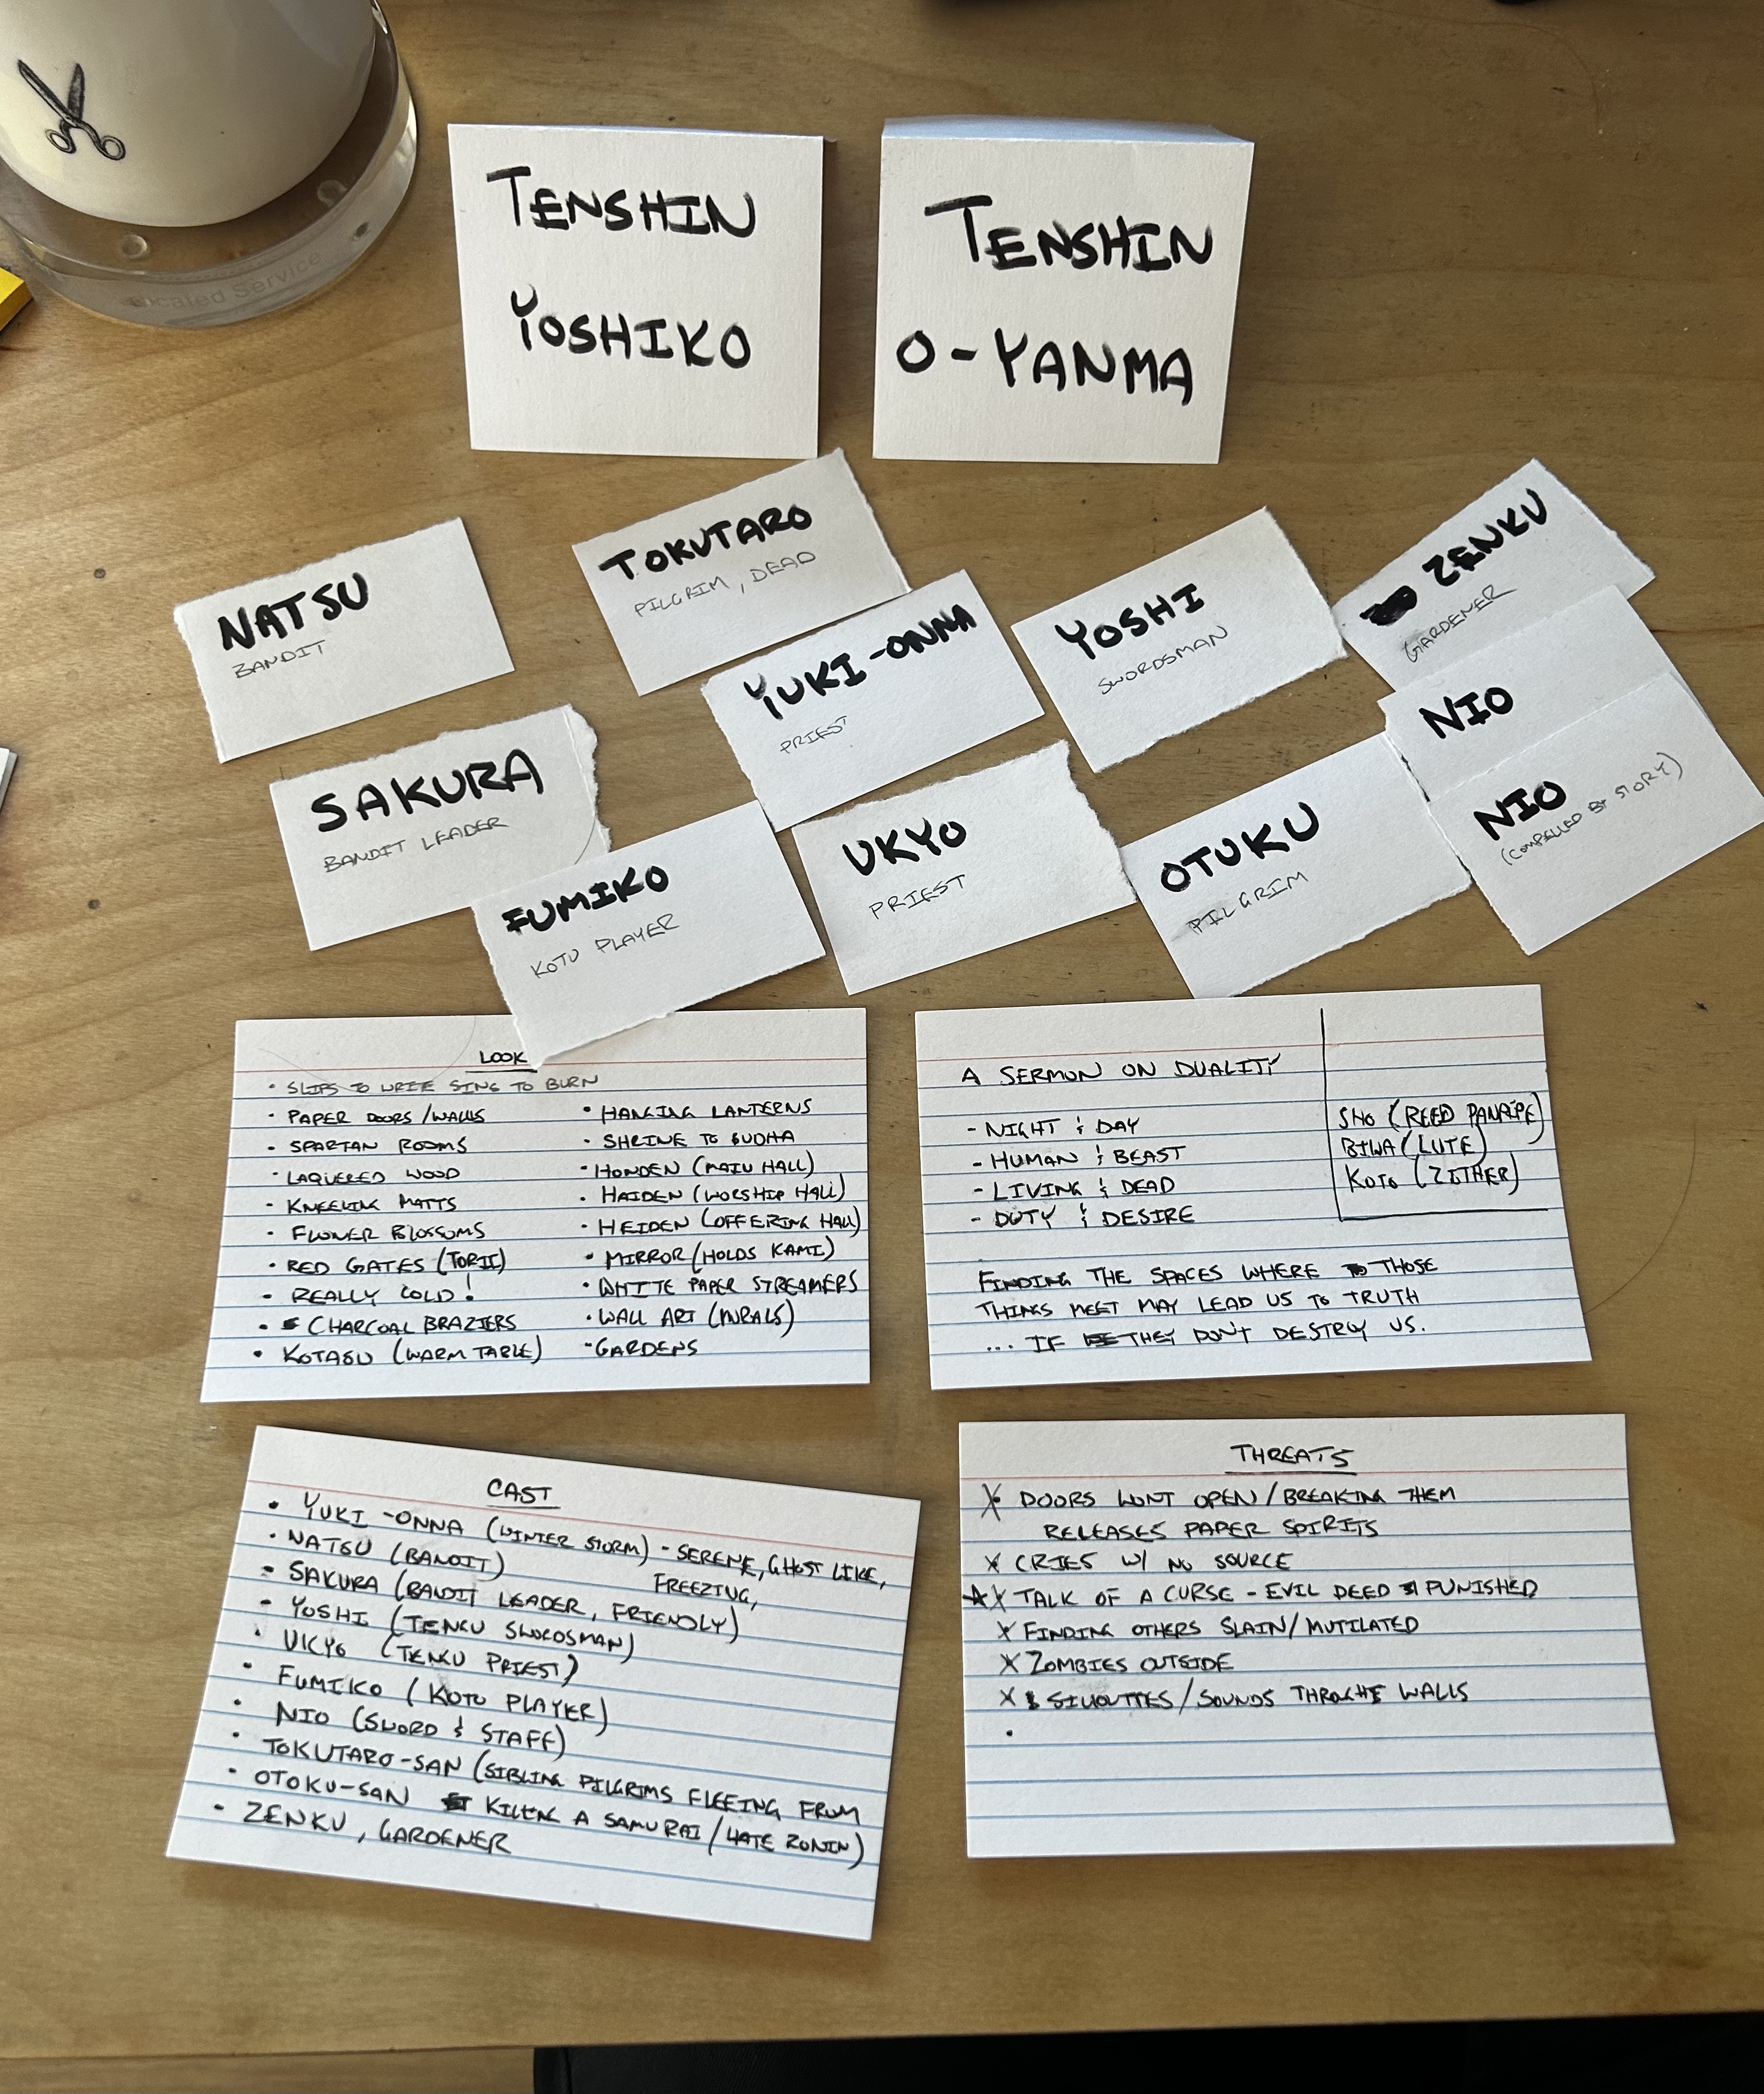 TENSHIN
YOSHIKO
TENSHIN
O-YANMA
NATSU
BANDIT
TOKUTARO
PILGRIM, DEAD
YUKI-ONNA
PRIEST
YOSHI
SWORDSMAN
ZENKU
GARDENER
NIO
NIO
(COMPELLED BY STORY)
SAKURA
BANDIT LEADER
FUMIKO
KOTO PLAYER
UKYO
PRIEST
OTUKU
PILGRIM
LOOK
• SLIPS TO WRITE SINS TO BURN
• PAPER DOORS/WALLS
• SPARTAN ROOMS
• LAQUERED WOOD
• KNEELING MATTS
• FLOWER BLOSSOMS
• RED GATES (TORII)
• REALLY COLD!
• CHARCOAL BRAZIERS
• KOTASU (WARM TABLE)
• HANGING LANTERNS
• SHRINE TO BUDHA
• HONDEN (MAIN HALL)
• HAIDEN (WORSHIP HALL)
• HEIDEN (OFFERING HALL)
• MIRROR (HOLDS KAMI)
• WHITE PAPER STREAMERS
• WALL ART (MURALS)
• GARDENS
A SERMON ON DUALITY
- NIGHT & DAY
- HUMAN & BEAST
- LIVING & DEAD
- DUTY & DESIRE
FINDING THE SPACES WHERE THOSE
THINGS MEET MAY LEAD US TO TRUTH
... IF THEY DON'T DESTROY US.
SHO (REED PANPIPE)
BIWA (LUTE)
KOTO (ZITHER)
CAST
• YUKI-ONNA (WINTER STORM) - SERENE, GHOST LIKE,
FREEZING,
• NATSU (BANDIT)
• SAKURA (BANDIT LEADER, FRIENDLY)
• YOSHI (TENGU SWORDSMAN)
• UKYO (TENGU PRIEST)
• FUMIKO (KOTO PLAYER)
• NIO (SWORD & STAFF)
• TOKUTARO-SAN (SIBLING PILGRIMS FLEEING FROM
• OTOKU-SAN KILLING A SAMURAI/HATE RONIN)
• ZENKU, GARDENER
THREATS
X DOORS WONT OPEN/BREAKING THEM
RELEASES PAPER SPIRITS
X CRIES W/ NO SOURCE
X TALK OF A CURSE - EVIL DEED PUNISHED
X FINDING OTHERS SLAIN/MUTILATED
X ZOMBIES OUTSIDE
X SILHOUTTES/SOUNDS THROUGH WALLS
•